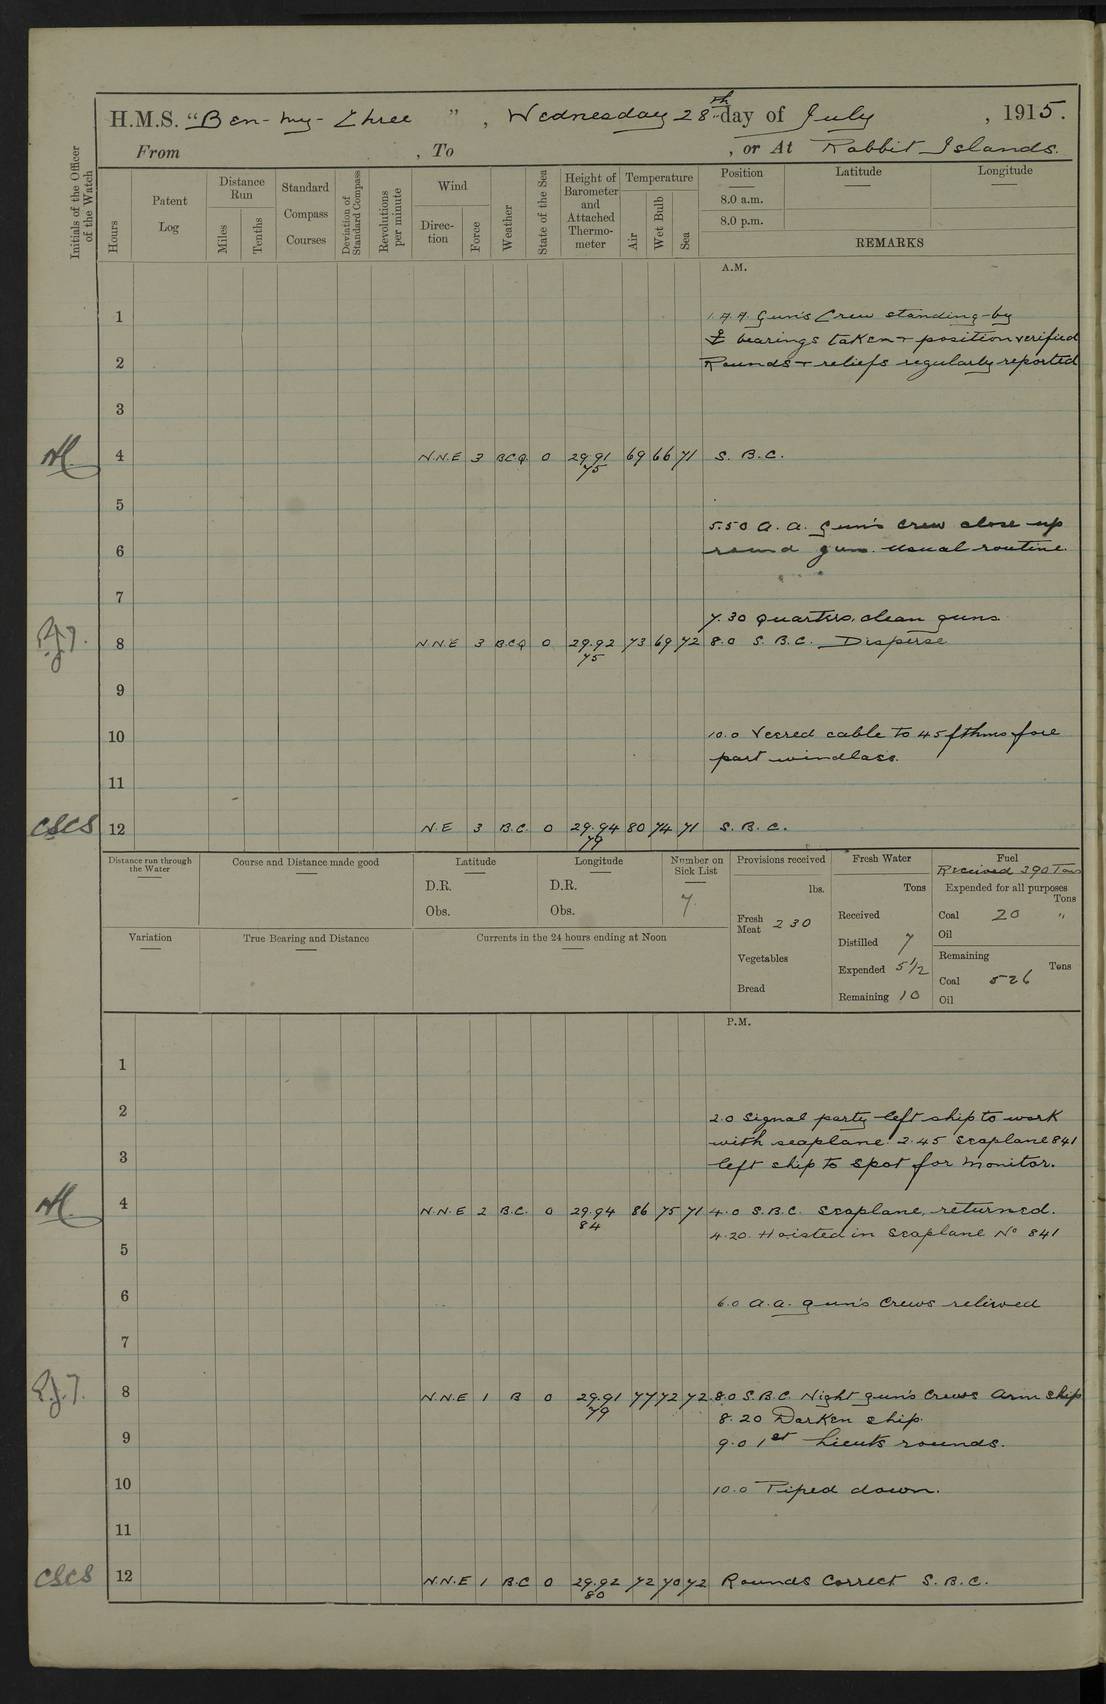 H.M.S. "Ben-my-Chree", Wednesday 28th day of July, 1915.
From , To , or At Rabbit Islands.
Initials of the Officer of the Watch
Hours
Patent Log
Distance Run
Miles
Tenths
Standard Compass Courses
Deviation of Standard Compass
Revolutions per minute
Wind
Direction
Force
Weather
State of the Sea
Height of Barometer and Attached Thermometer
Temperature
Air
Wet Bulb
Sea
Position
8.0 a.m.
8.0 p.m.
Latitude
Longitude
REMARKS
A.M.
1 A.A. Gun's Crew standing-by
bearings taken + position verified
2 Rounds + reliefs regularly reported
3
4 N.N.E 3 B.C.Q. 0 29.91 75 69 66 71 S. B. C.
5
5.50 A. A. gun's crew close up
6 round gun. usual routine.
7
7.30 Quarters, clean guns
8 N.N.E 3 B.C.Q 0 29.92 75 73 69 72 8.0 S.B.C. Disperse
9
10 10.0 Veered cable to 45 fthms fore
part windlass.
11
CSCS 12 N.E 3 B.C. 0 29.94 79 80 74 71 S. B. C.
Distance run through the Water
Course and Distance made good
Latitude
D.R.
Obs.
Longitude
D.R.
Obs.
Number on Sick List
7
Provisions received
lbs.
Fresh Meat 230
Vegetables
Bread
Fresh Water
Tons
Received
Distilled 7
Expended 5 1/2
Remaining 10
Fuel
Received 390 Tons
Expended for all purposes
Tons
Coal 20 "
Oil
Remaining
Tons
Coal 526
Oil
Variation
True Bearing and Distance
Currents in the 24 hours ending at Noon
P.M.
1
2 2.0 Signal party left ship to work
with seaplane. 2.45 Seaplane 841
3 left ship to spot for monitor.
4 N.N.E 2 B.C. 0 29.94 84 86 75 71 4.0 S.B.C. Seaplane, returned.
4.20. Hoisted in Seaplane No 841
5
6 6.0 A.A. gun's Crews relieved
7
8 N.N.E 1 B 0 29.91 79 77 72 72 8.0 S.B.C. Night gun's Crews Arm ship
8.20 Darken ship.
9 9.0 1st Lieuts rounds.
10 10.0 Piped down.
11
CSCS 12 N.N.E 1 B.C 0 29.92 80 72 70 72 Rounds Correct S. B. C.